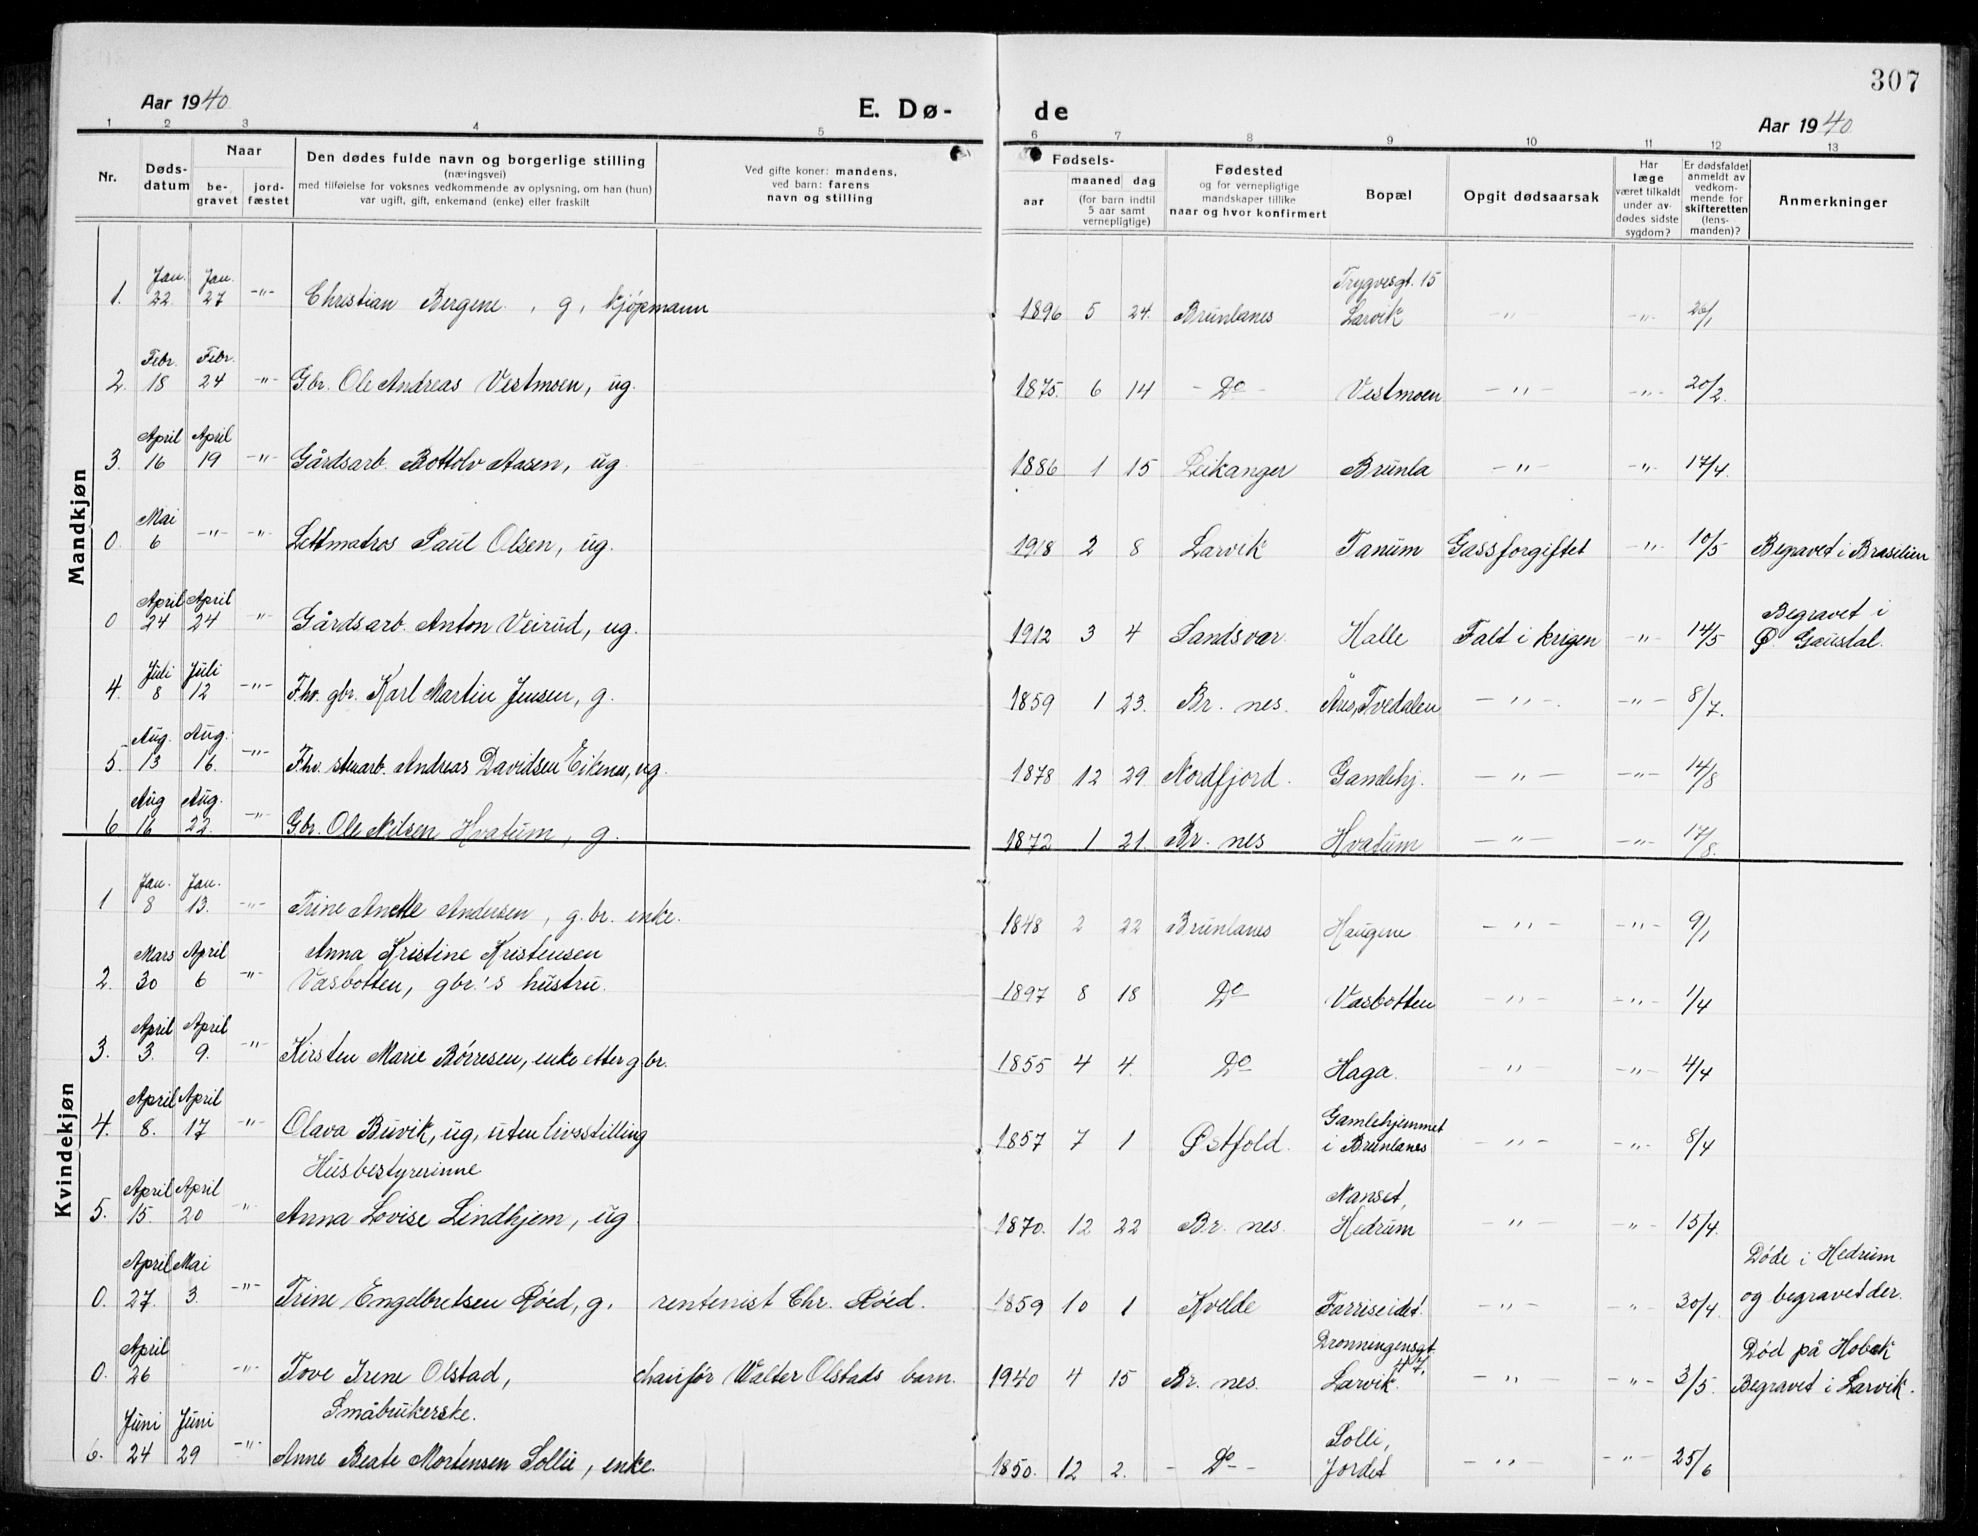 307
Aar 1940
E. Dø-
de
Aar 1940
1 2 3 4 5 6 7 8 9 10 11 12 13
Nr.
Døds-
datum
Naar
be-
gravet
jord-
fæstet
Den dødes fulde navn og borgerlige stilling
(næringsvei)
med tilføielse for voksnes vedkommende av oplysning, om han (hun)
var ugift, gift, enkemand (enke) eller fraskilt
Ved gifte koner: mandens,
ved barn: farens
navn og stilling
Fødsels-
aar
maaned dag
(for barn indtil
5 aar samt
vernepligtige)
Fødested
og for vernepligtige
mandskaper tillike
naar og hvor konfirmert
Bopæl
Opgit dødsaarsak
Har
læge
været tilkaldt
under av-
dødes sidste
sygdom?
Er dødsfaldet
anmeldt av
vedkom-
mende for
skifteretten
(lens-
manden)?
Anmerkninger
Mandkjøn
Jan. Jan. Trygvesgt. 15
1. 22. 27 -"- Christian Bergene, g, kjøpmann 1896 5 24. Brunlanes Larvik -"- -"- 26/1
Febr. Febr.
2. 18 24 -"- Gbr. Ole Andreas Vestmoen, ug. 1875. 6 14 - Do - Vestmoen -"- -"- 20/2.
April April
3. 16 19 -"- Gårdsarb. Bottolv Aasen, ug. 1886 1 15 Leikanger Brunla -"- -"- 17/4.
Mai
0. 6 -"- -"- Lettmatros Paul Olsen, ug. 1918 2 8 Larvik Tanum Gassforgiftet -"- 10/5 Begravet i Brasilien
April April Begravet i
0 24 24 -"- Gårdsarb. Anton Veirud, ug. 1912 3 4 Sandsvær Halle Falt i krigen -"- 14/5 Ø. Gausdal.
Juli Juli
4. 8 12 -"- Fhv. gbr. Karl Martin Jensen, g. 1859 1 23. Br. nes. Års, Tvedalen -"- -"- 8/7.
Aug. Aug.
5. 13 16. -"- Fhv. stenarb. Andreas Davidsen Eikenes, ug. 1878 12 29. Nordfjord. Gamlehj. -"- -"- 14/8
Aug Aug.
6 16 22. -"- Gbr. Ole Nilsen Hvatum, g. 1872 1 21. Br. nes Hvatum -"- -"- 17/8.
Kvindekjøn
Jan. Jan.
1 8 13. -"- Trine Anette Andersen, g.br. enke. 1848 2 22 Brunlanes Haugene -"- -"- 9/1
Mars April Anna Kristine Kristensen
2. 30 6 -"- Vasbotten, gbr.'s hustru. 1897 8 18 Do Vasbotten -"- -"- 1/4
April April
3. 3. 9. -"- Kirsten Marie Børresen, enke etter gbr. 1855 4 4. Do Haga. -"- -"- 4/4
April April Gamlehjemmet
4. 8. 17 -"- Olava Buvik, ug, uten livsstilling 1857 7 1 Østfold. i Brunlanes -"- -"- 8/4
April April Husbestyrerinne Nanset,
5. 15. 20 -"- Anna Lovise Lindhjem, ug 1870. 12 22 Br. nes. Hedrum -"- -"- 15/4.
April Mai Døde i Hedrum
0. 27. 3. -"- Trine Engelbretsen Røed, g. rentenist Chr. Røed. 1859 10 1 Kvelde Farriseidet. -"- -"- 30/4 og begravet der.
April Dronningensgt. Død på Hobek
0. 26 -"- Tove Irene Olstad, chaufør Walter Olstads barn. 1940 4 15 Br. nes. Larvik. -"- -"- 3/5. Begravet i Larvik.
Juni Juni Småbrukerske. Solli,
6. 24 29 -"- Anne Beate Mortensen Sollie, enke. 1850. 12 2. - Do - Jordet -"- -"- 25/6